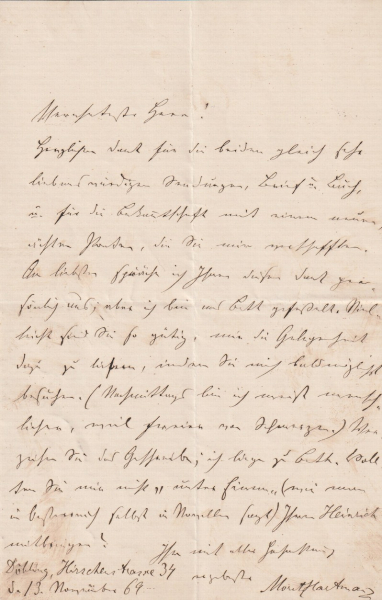 Verehrtester Herr!
Herzlichen Dank für die beiden gleich sehr
liebenswürdigen Sendungen, Brief u. Buch,
u. für die Bekanntschaft mit einem neuen,
ächten Poeten, die Sie mir verschafften.
Am liebsten spräche ich Ihnen diesen Dank per-
sönlich aus; aber ich bin ans Bett gefesselt. Viel-
leicht sind Sie so gütig, mir die Gelegenheit
dazu zu liefern, indem Sie mich baldmöglichst
besuchen. (Nachmittags bin ich meist mensch-
licher, weil freier von Schmerzen.) Ver-
zeihen Sie das Geschreibe; ich liege zu Bett. Woll-
ten Sie mir nicht „unter Einem“ (wie man
in Oesterreich selbst in Novellen sagt) Ihren Heinrich
mitbringen?
Ihr mit aller Hochachtung
ergebenster
Moritz Hartmann
Döbling, Hirschenstrasse 34
d. 13. November 69